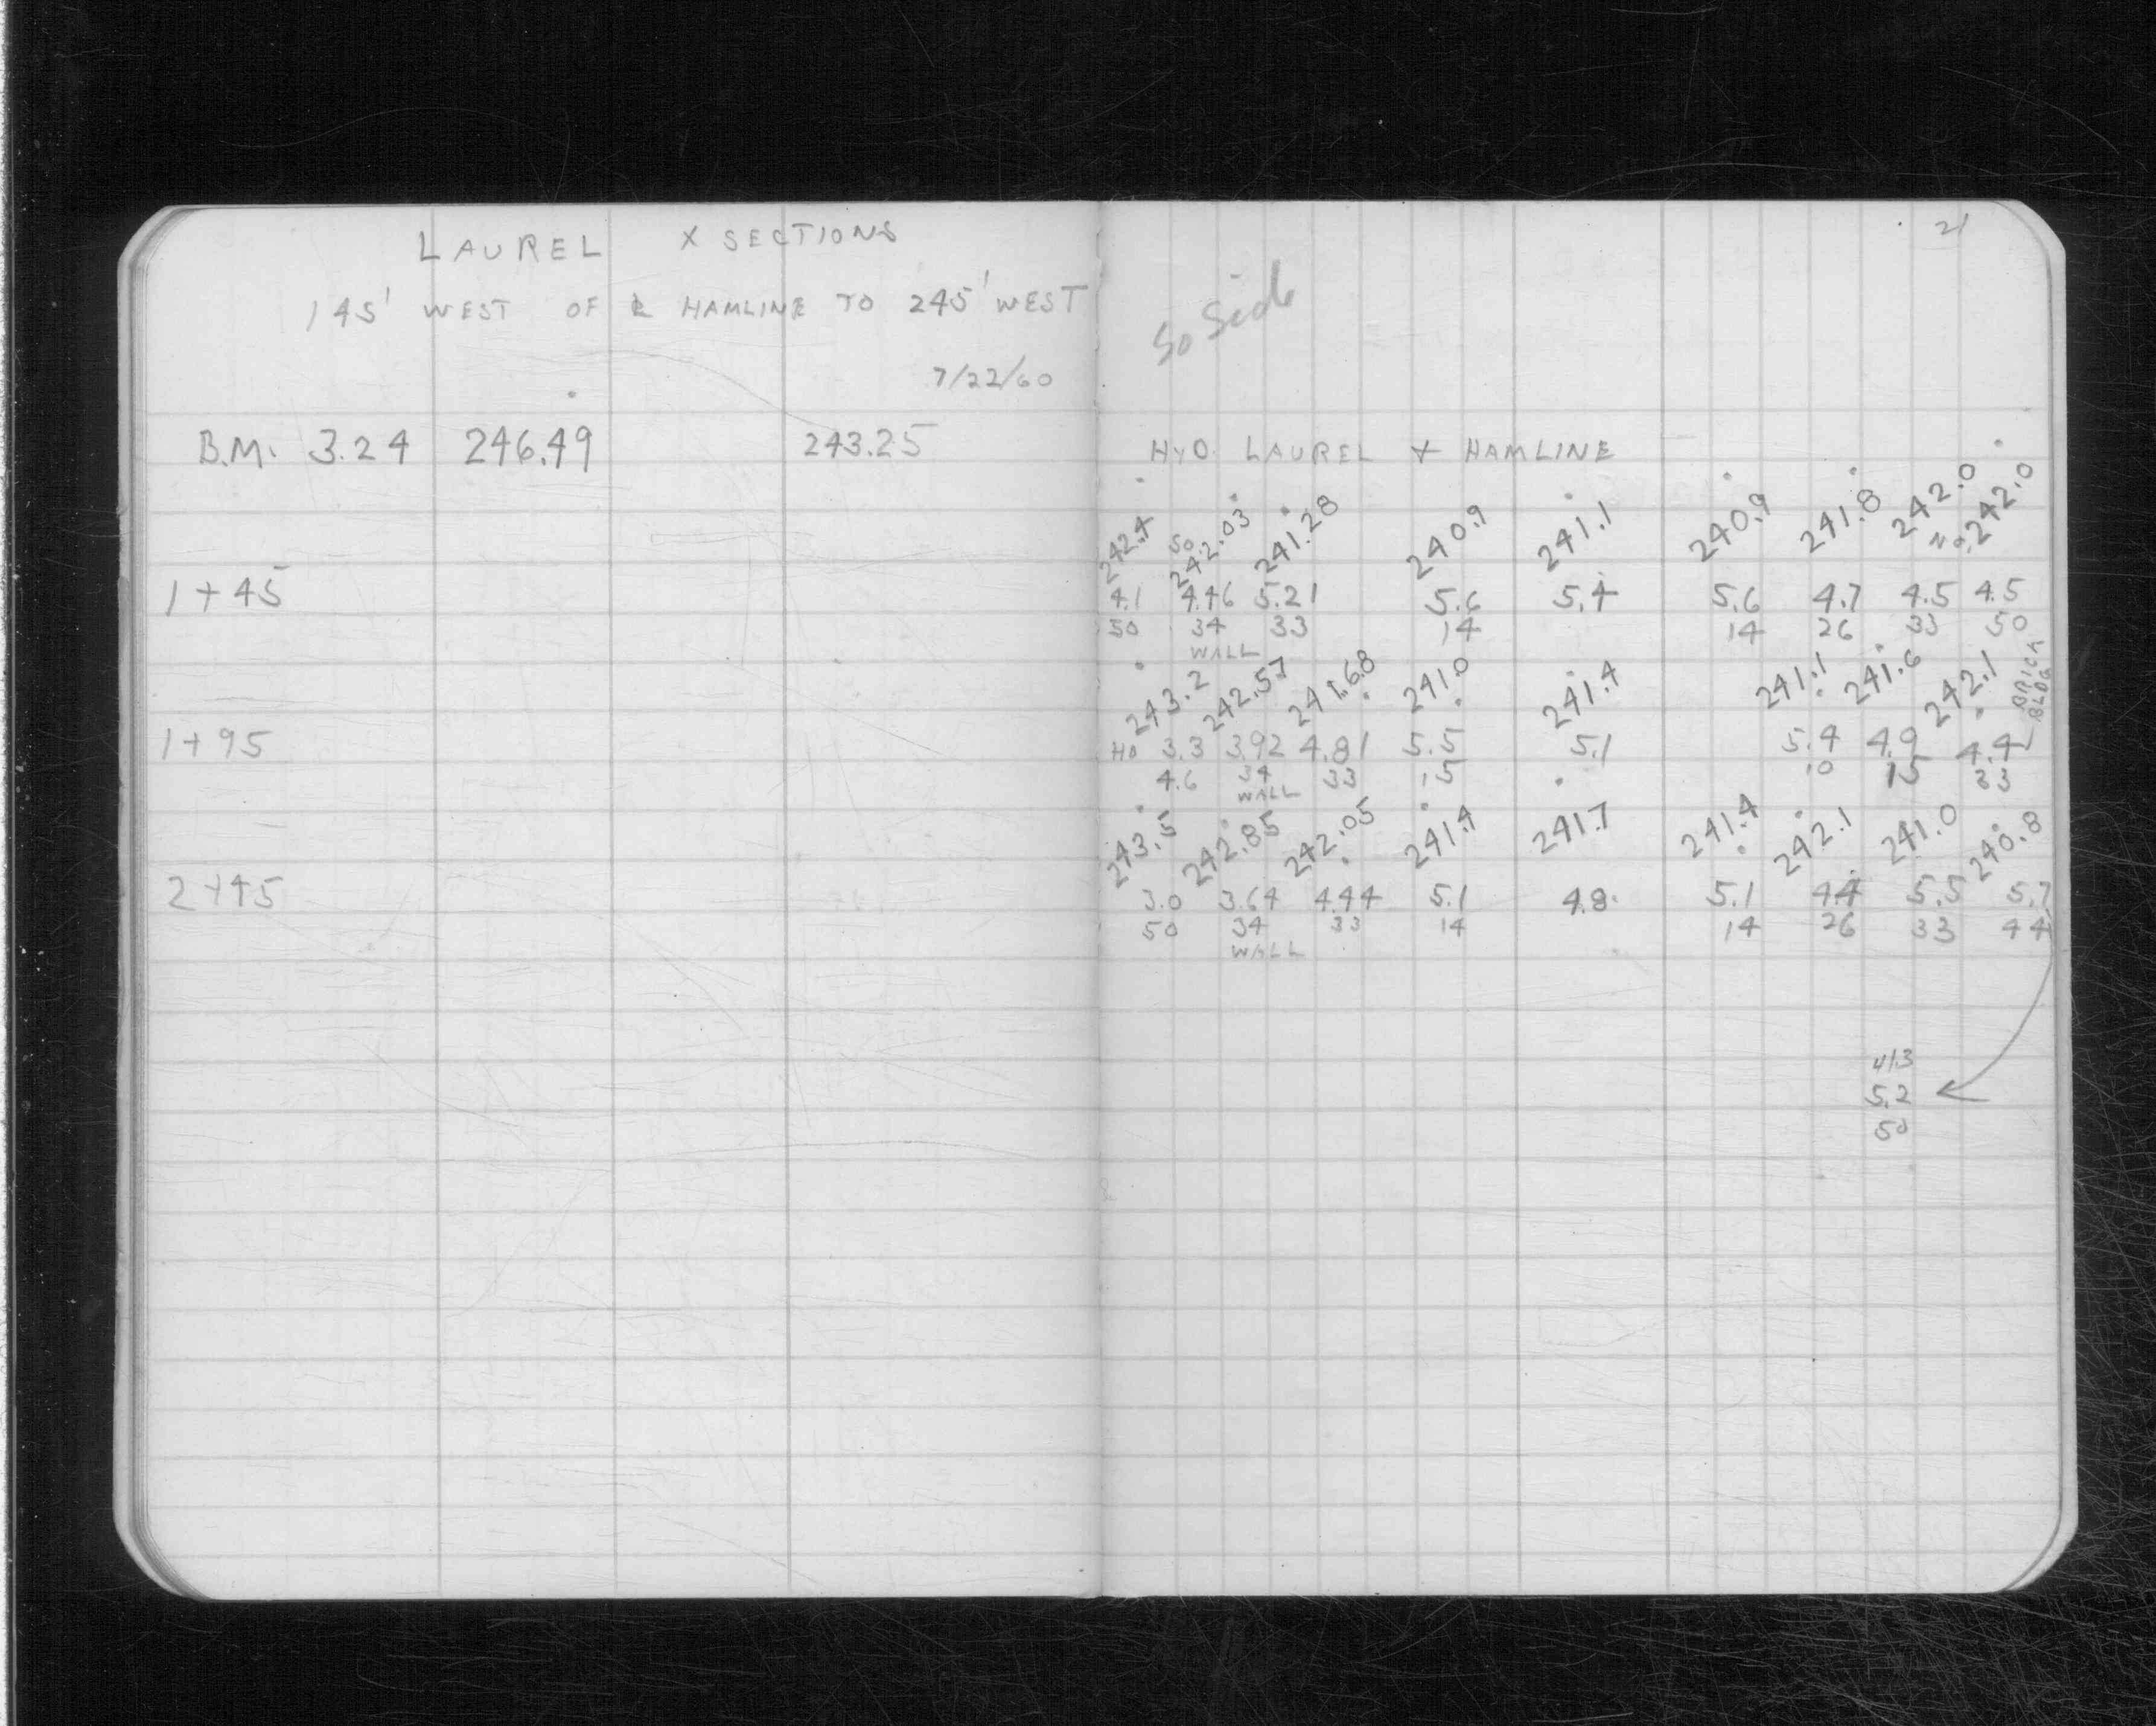 LAUREL X SECTIONS
145' WEST OF ℄ HAMLINE TO 245' WEST
7/22/60
B.M. 3.24 246.49 243.25
1+45
1+95
2+45
21
So Side
HYD. LAUREL + HAMLINE
242.4 So. 242.03 241.28 240.9 241.1 240.9 241.8 242.0 No. 242.0
4.1 4.46 5.21 5.6 5.4 5.6 4.7 4.5 4.5
50 34 33 14 14 26 33 50
WALL
243.2 242.57 241.68 241.0 241.4 241.1 241.6 242.1 BRICK BLDG
3.3 3.92 4.81 5.5 5.1 5.4 4.9 4.4
46 34 33 15 10 15 33
WALL
243.5 242.85 242.05 241.4 241.7 241.4 242.1 241.0 240.8
3.0 3.64 4.44 5.1 4.8 5.1 4.4 5.5 5.7
50 34 33 14 14 26 33 44
WALL
41.3
5.2
50